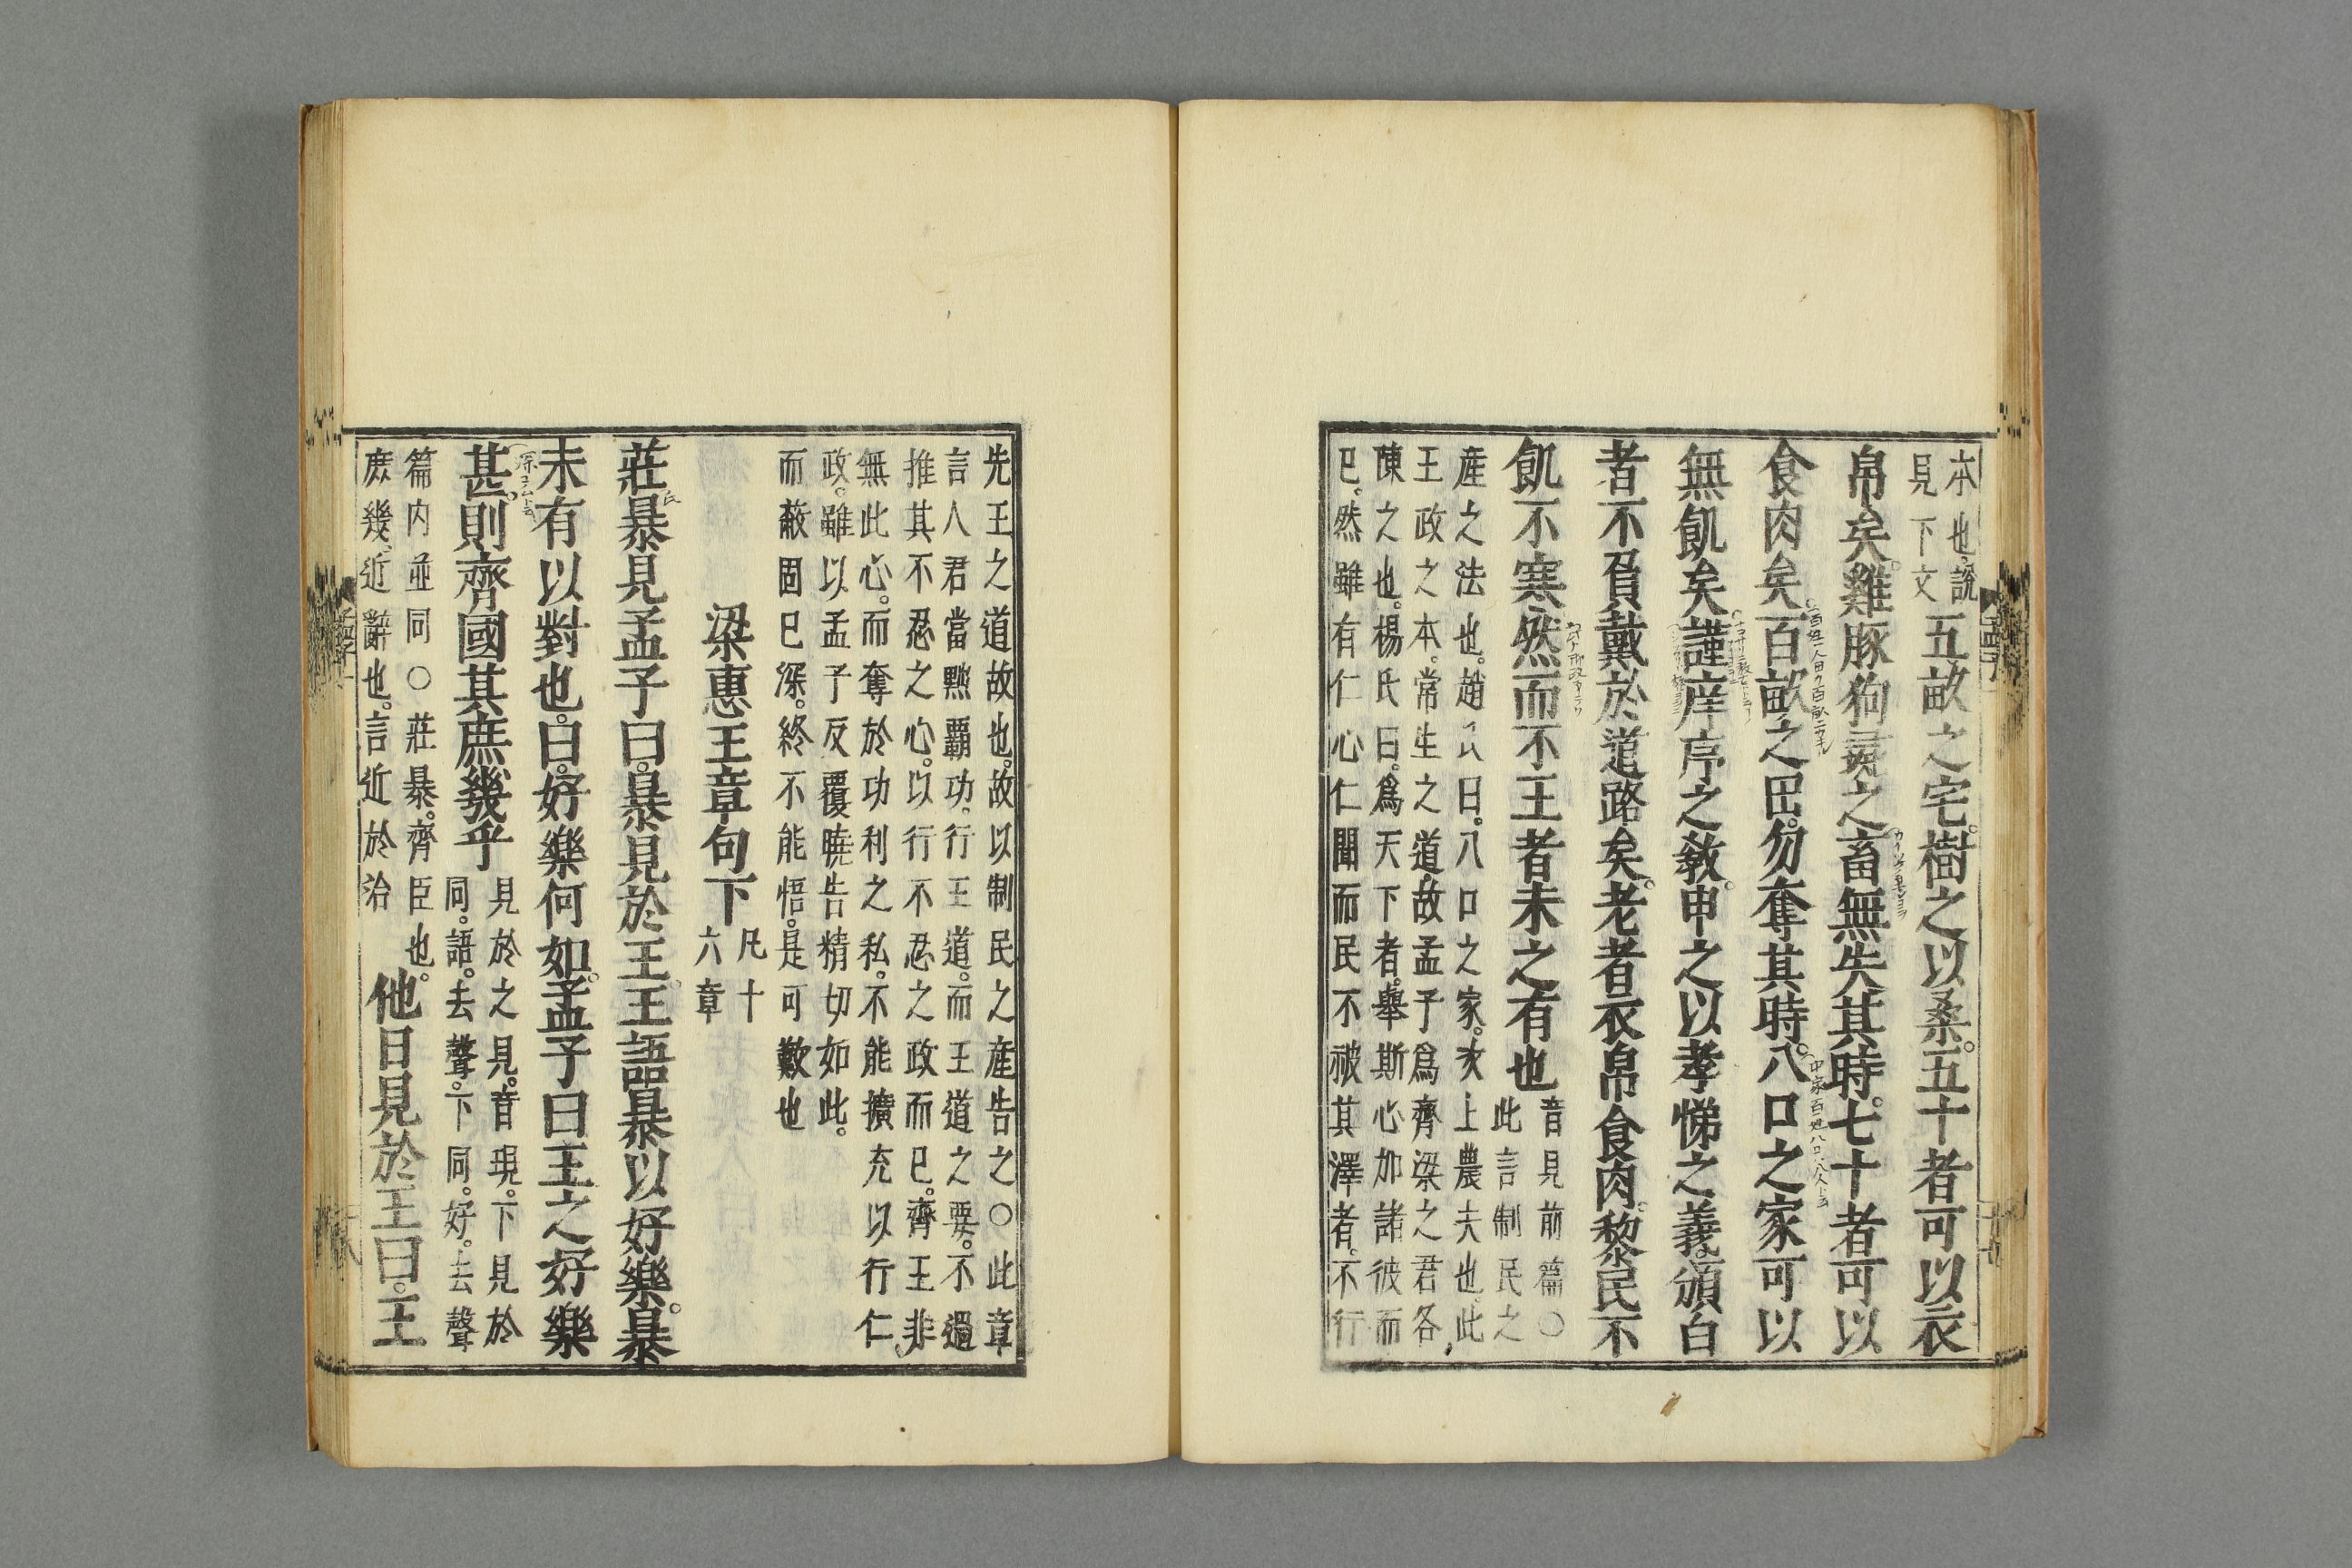 本也說
見下文
五畝之宅樹之以桑五十者可以衣
帛矣雞豚狗彘之畜無失其時七十者可以
食肉矣百畝之田勿奪其時八口之家可以
無飢矣謹庠序之教申之以孝悌之義頒白
者不負戴於道路矣老者衣帛食肉黎民不
飢不寒然而不王者未之有也
音見前篇○
此言制民之
產之法也趙氏曰八口之家次上農夫也此
王政之本常生之道故孟子爲齊梁之君各
陳之也楊氏曰爲天下者舉斯心加諸彼而
已然雖有仁心仁聞而民不被其澤者不行
先王之道故也故以制民之產告之○此章
言人君當黜覇功行王道而王道之要不過
推其不忍之心以行不忍之政而已齊王非
無此心而奪於功利之私不能擴充以行仁
政雖以孟子反覆曉告精切如此
而蔽固已深終不能悟是可歎也
梁惠王章句下
凡十
六章
莊暴見孟子曰暴見於王王語暴以好樂暴
未有以對也曰好樂何如孟子曰王之好樂
甚則齊國其庶幾乎
見於之見音現下見於
同語去聲下同好去聲
篇內並同○莊暴齊臣也
庶幾近辭也言近於治
他日見於王曰王